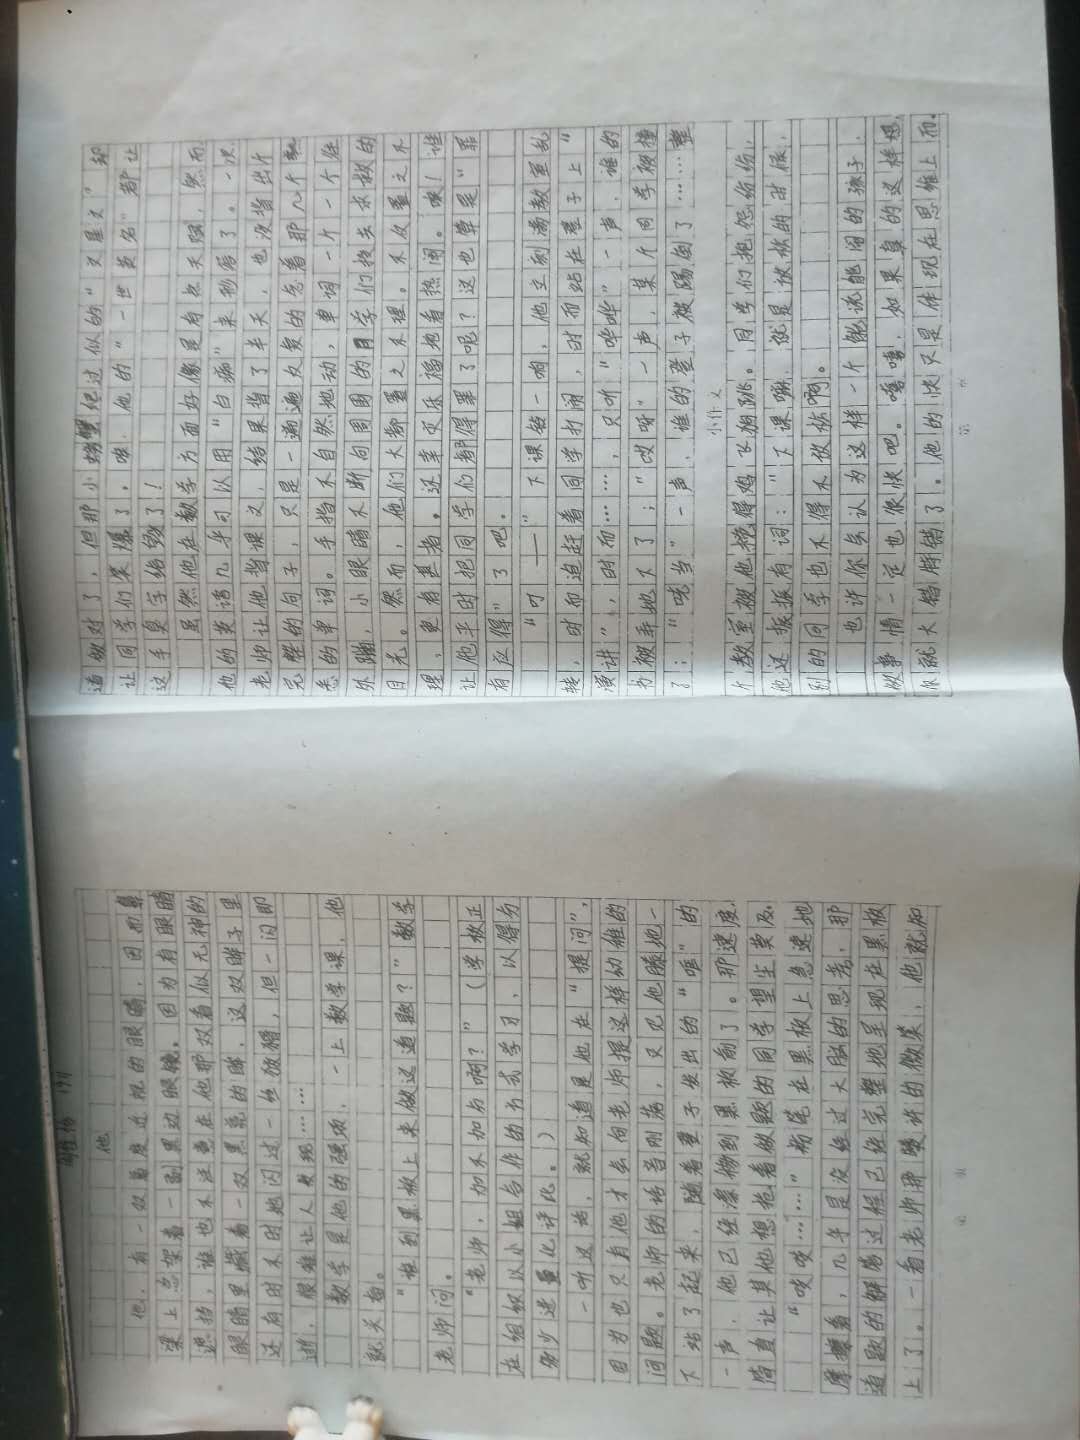 他
他，有一双高度近视的眼睛，因而鼻
梁上总架着一副黑边眼镜。因为有眼睛
遮挡，谁也不注意在他那双看似无神的
眼睛里藏着一双黑亮的眸，这双眸子里
还有时不时地闪过一丝狡猾，但一闪即
逝，很难让人发现……
数学是他的强项，一上数学课，他
就来着。
“谁到黑板上来做这道题？”数学
老师问。
“老师，加不加分啊？”（学校正
在组织以小组合作的方式学习，以得分
多少进量化评比。）
一听这话，就知道是他在“提问”，
因为也只有他才会向老师提这样幼稚的
问题。老师的话音刚落，又见他腾地一
下站了起来，随着凳子发出的“唯”的
一声，他已经漂移到黑板前了。那速度，
简直让其他想抢着做题的同学望尘莫及。
“吱吱……”粉笔在黑板上急速地
摩擦着，几乎是没经过大脑的思考，那
道题的解答过程已经完整地呈现在黑板
上了。一看老师满脸赞许的微笑，他就知
道做对了，但那小螃蟹纪过似的“又是文”却
让同学们笑爆了。唉，他的“一世英名”都让
这手臭字给毁了！
虽然他在数学方面好像是有点天赋，然而
他的英语几乎可以用“白痴”来形容了。一次，
老师让他背课文，结果背了半天，也没背出个
完整的句子，只是一遍遍反复的念着那几个熟
悉的单词。手指不自然地动，单词一个一个往
外蹦，小眼睛不断向周围的同学们投去求救的
目光。然而，他们大都置之不理。不仅置之不
理，更有甚者。还幸灾乐祸地看热闹。唉！谁
让他平时把同学们都得罪了呢？这也算是“罪
有应得”了吧。
“叮——”下课铃一响，他立刻满教室乱
转，时而追赶着同学打闹，时而站在凳子上“
演讲”，时而……，只听“哗哗”一声，谁的
书被弄地下了；“哎呀”一声，某个同学被撞
了；“咣当”一声，谁的凳子被踢倒了……整
小作文
个教室被他搅得鸡飞狗跳。同学们抱怨纷纷，
他还振振有词：“下课嘛，就是放松的时候，
别的同学也不得不佩服啊。
也许你会认为这样一个能说能闹的孩子，
做事情一定也很快吧。嘻嘻，如果真的这样想，
你就大错特错了。他的快只是体现在思维上而